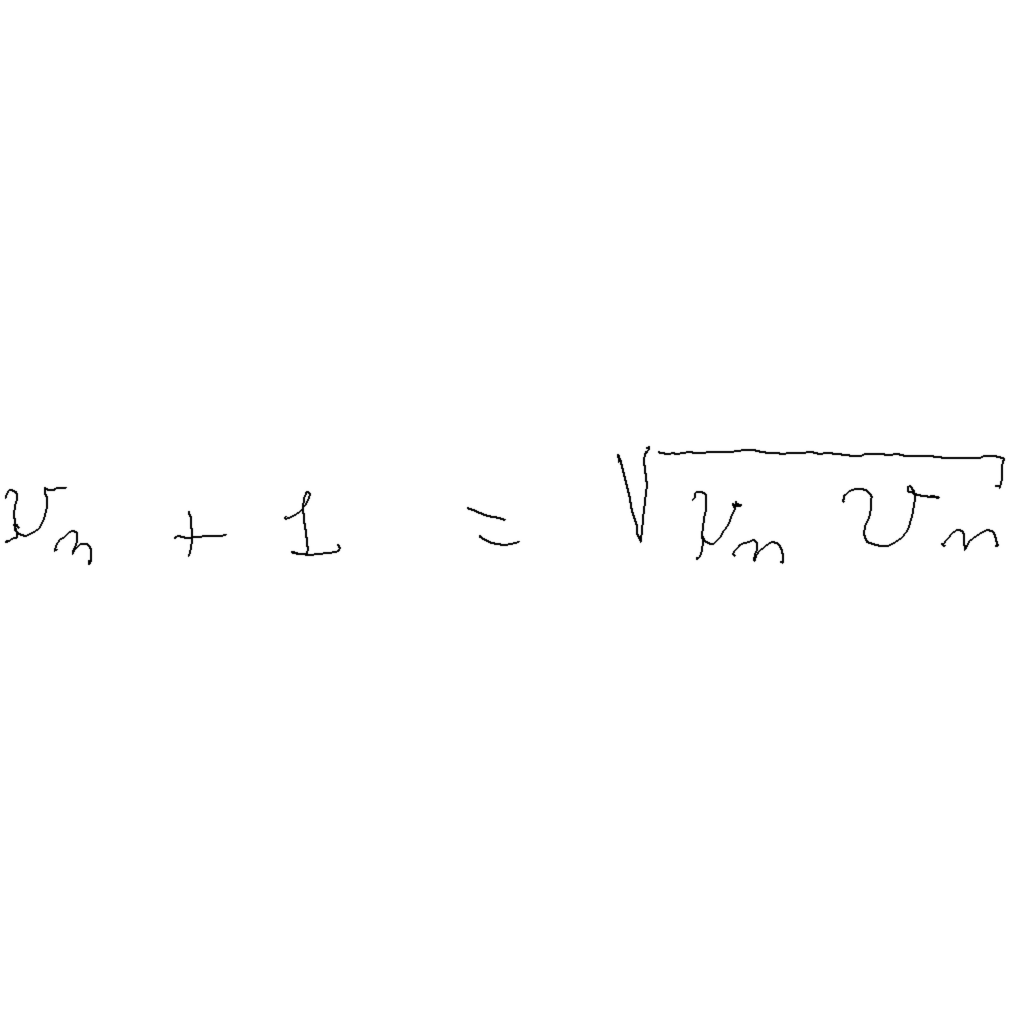 v_n + 1 = \sqrt{v_n v_n}